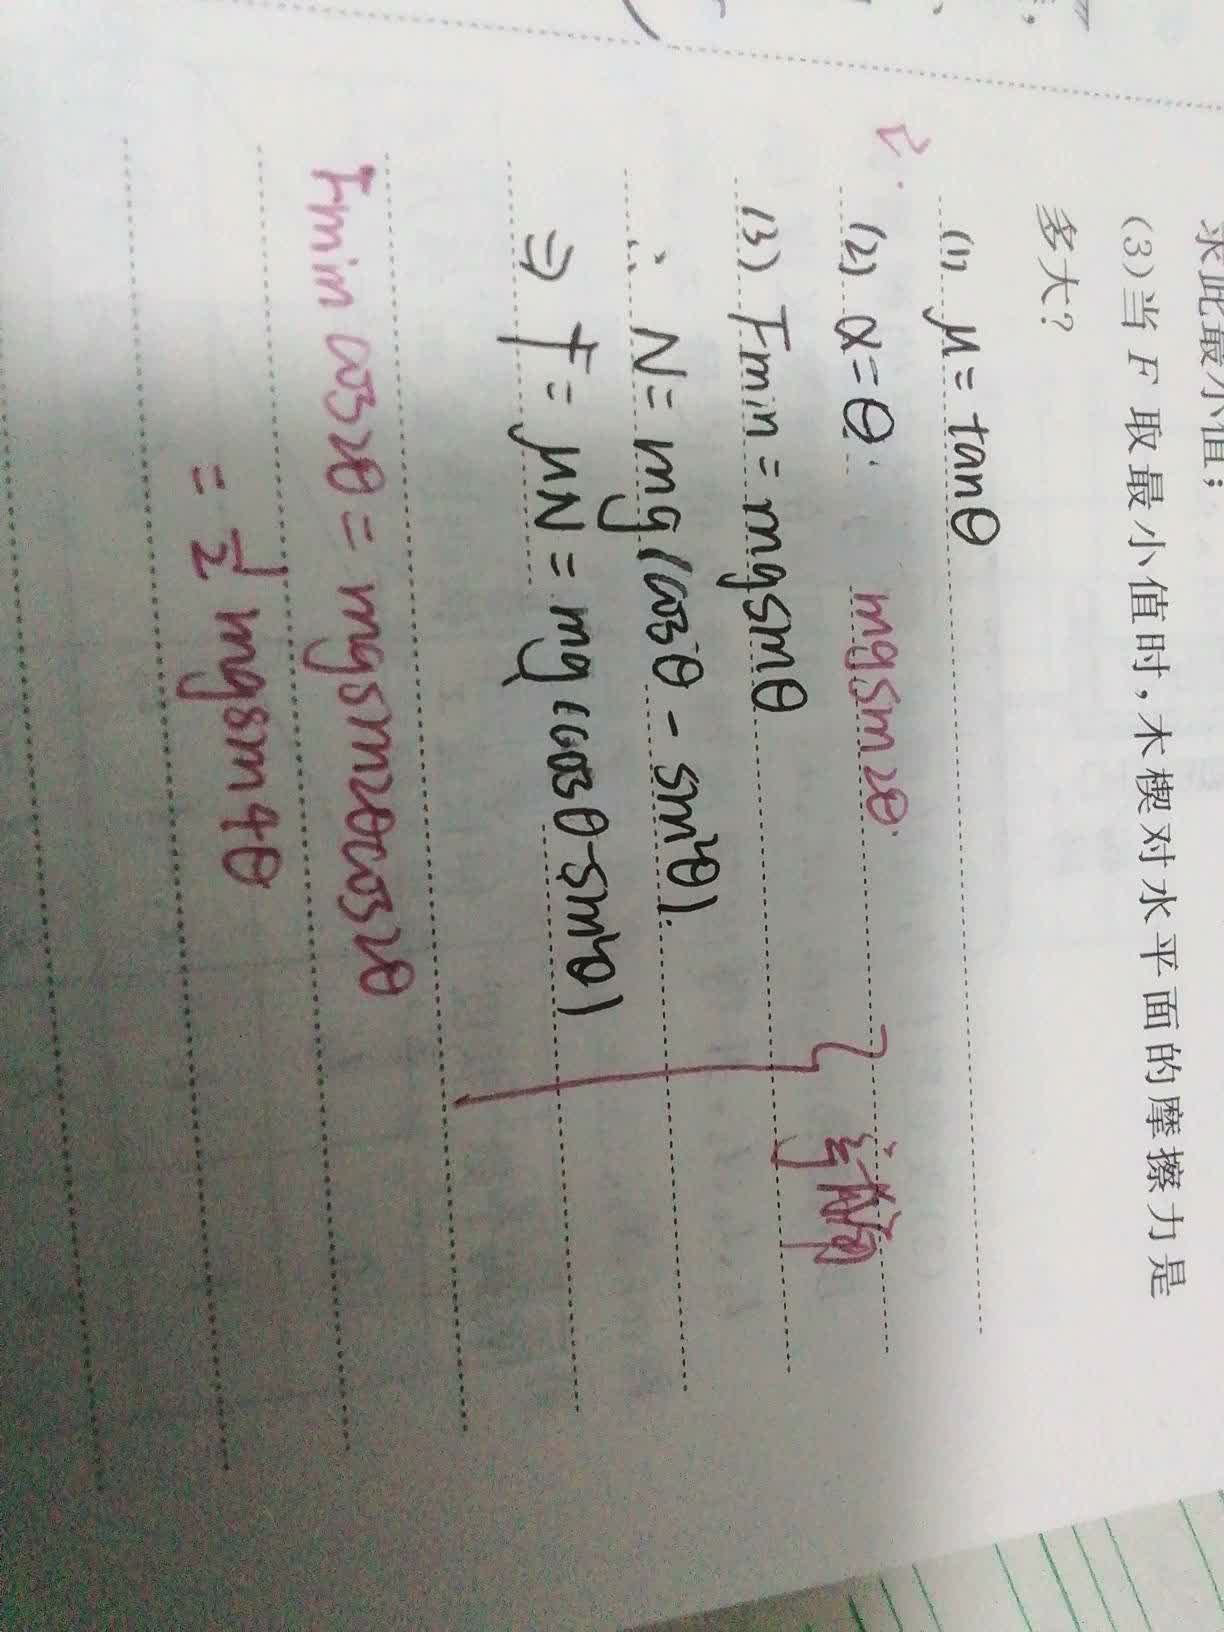 求此最小值；
(3)当 F 取最小值时，木楔对水平面的摩擦力是
多大？
(1) μ = tanθ
2. (2) α = θ. mgsin2θ.
(3) Fmin = mgsinθ
∴ N = mg(cosθ - sin²θ).
⇒ f = μN = mg(cosθ-sin²θ)
Fmin cos2θ = mgsin2θcos2θ
= 1/2 mgsin4θ